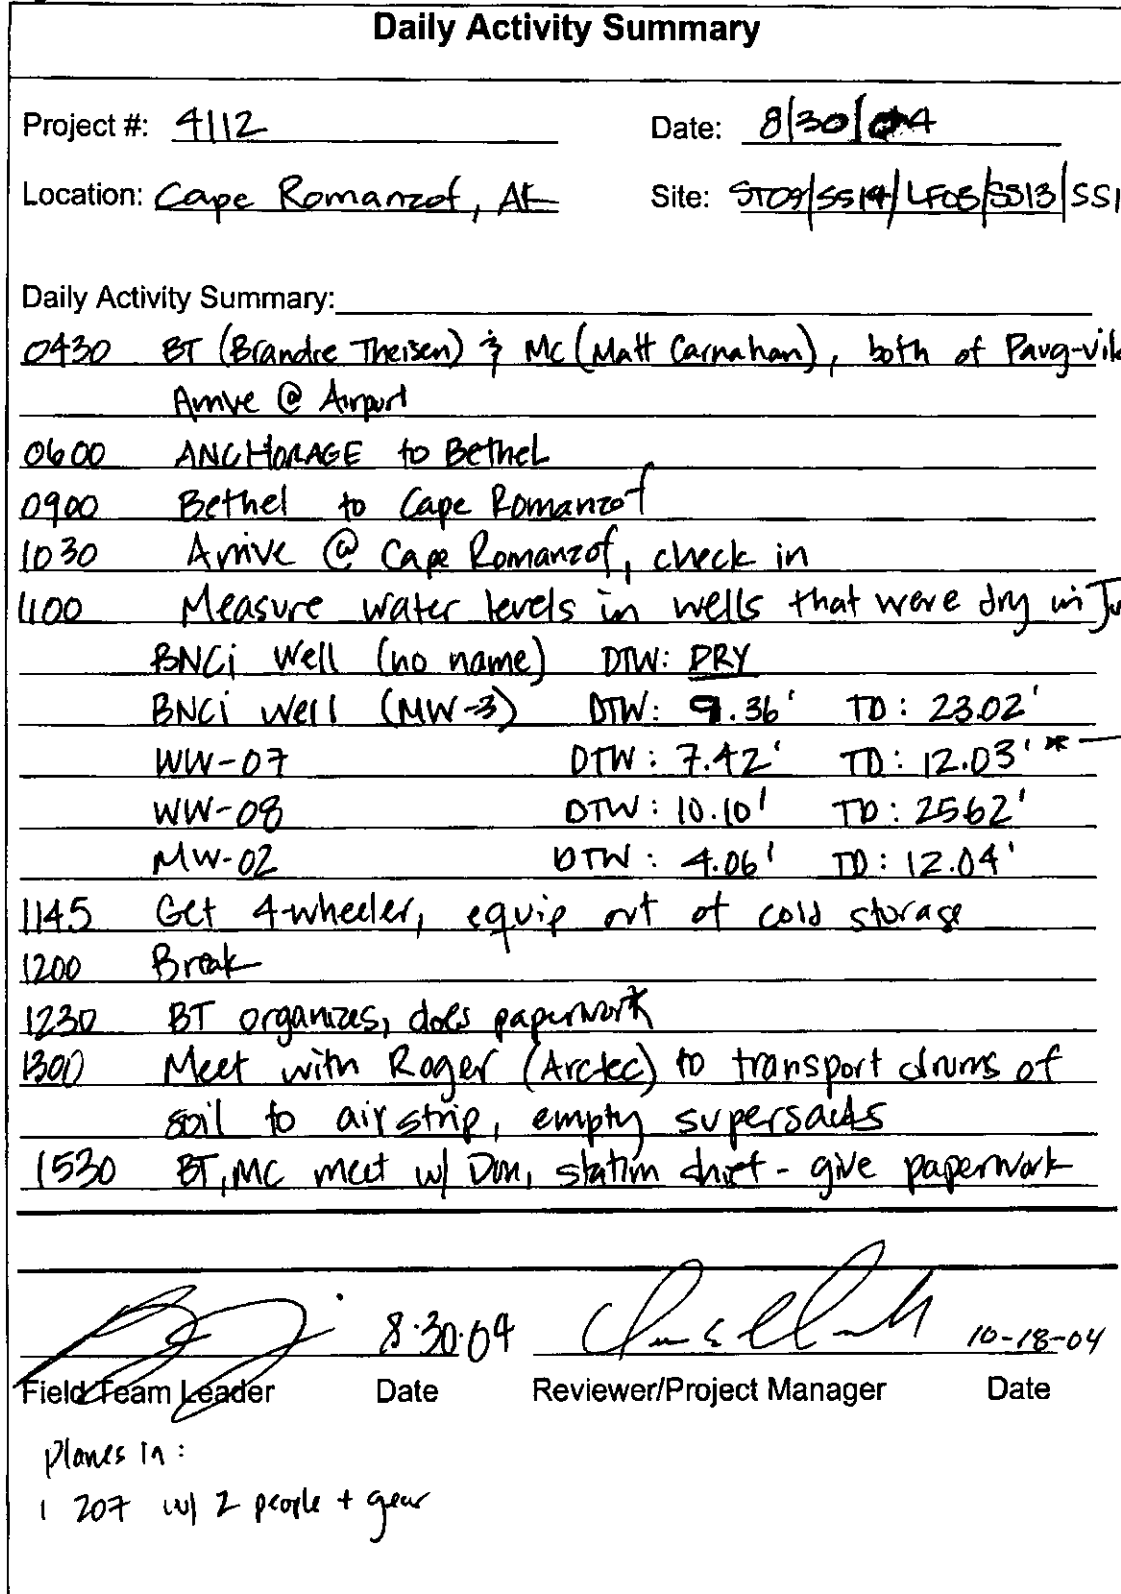 Daily Activity Summary
Project #: 4112 Date: 8/30/04
Location: Cape Romanzof, AK Site: ST09/SS14/LF03/SS13/SS1
Daily Activity Summary:
0430 BT (Brandre Theisen) & MC (Matt Carnahan), both of Paug-Vik
Arrive @ Airport
0600 ANCHORAGE to Bethel
0900 Bethel to Cape Romanzof
1030 Arrive @ Cape Romanzof, check in
1100 Measure water levels in wells that were dry in Ju
BNCi Well (no name) DTW: DRY
BNCi well (MW-3) DTW: 9.36' TD: 23.02'
WW-07 DTW: 7.42' TD: 12.03' *
WW-08 DTW: 10.10' TD: 25.62'
MW-02 DTW: 4.06' TD: 12.04'
1145 Get 4-wheeler, equip out of cold storage
1200 Break
1230 BT organizes, does paperwork
1300 Meet with Roger (Arctec) to transport drums of
soil to airstrip, empty supersacks
1530 BT, MC meet w/ Don, station chief - give paperwork
8.30.04 10-18-04
Field Team Leader Date Reviewer/Project Manager Date
planes in:
1 207 w/ 2 people + gear